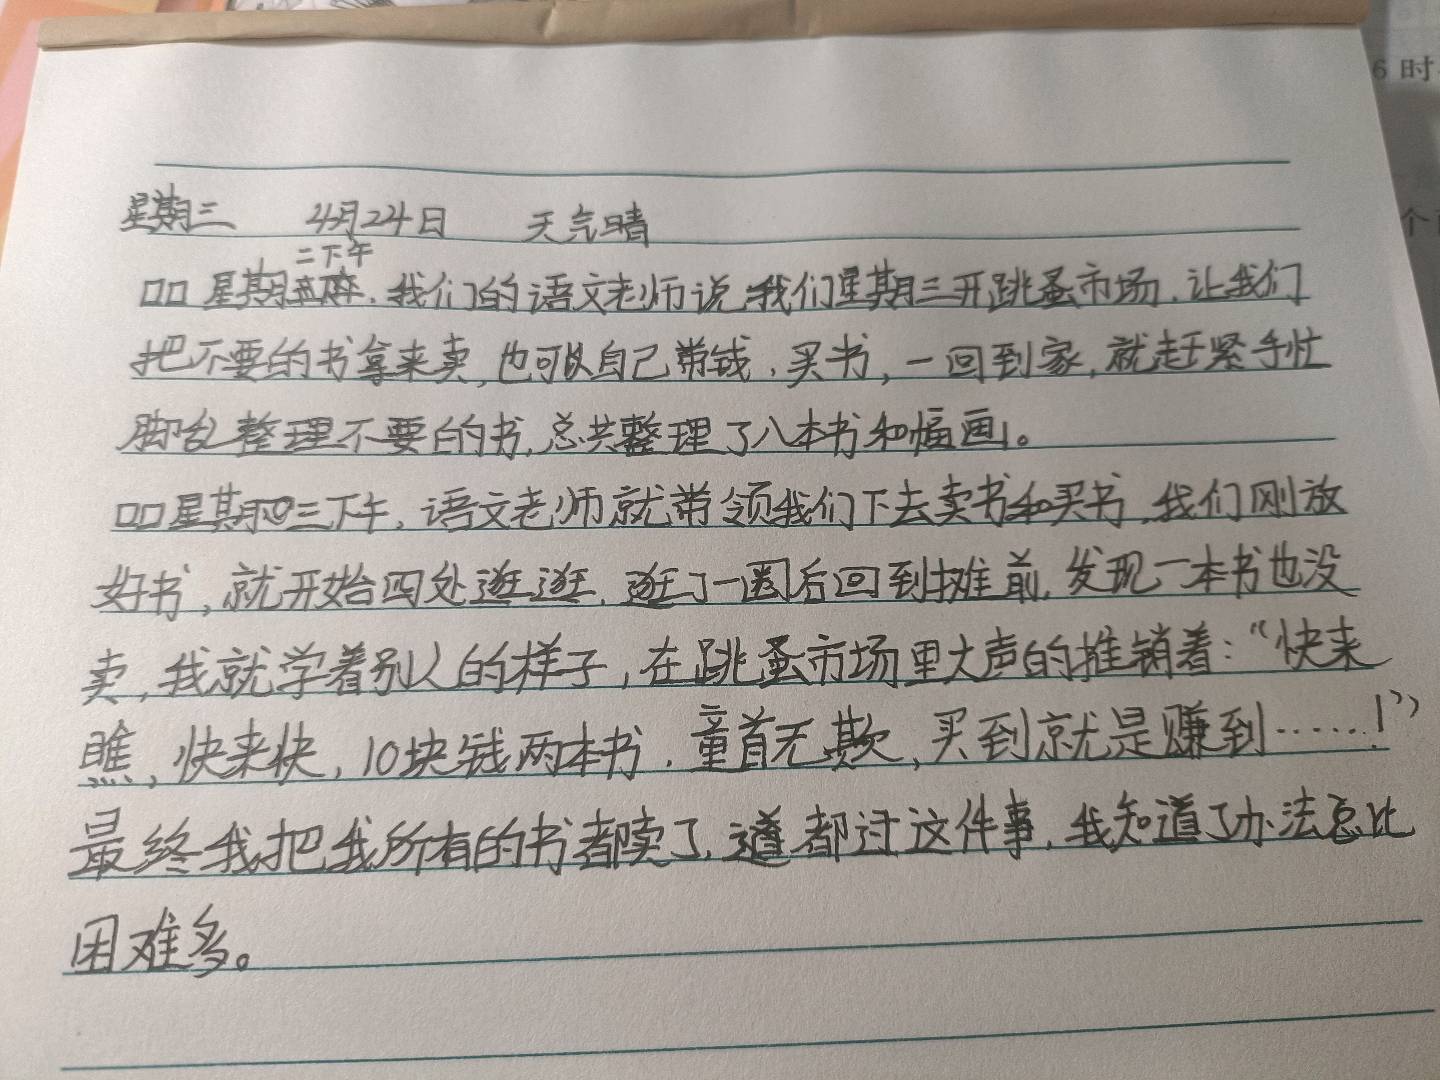 6时
个
星期三 4月24日 天气晴
二下午
星期,我们的语文老师说我们星期三开跳蚤市场,让我们
把不要的书拿来卖,也可以自己带钱,买书,一回到家,就赶紧手忙
脚乱整理不要的书,总共整理了八本书和幅画。
星期三下午,语文老师就带领我们下去卖书和买书,我们刚放
好书,就开始四处逛逛,逛了一圈后回到摊前,发现一本书也没
卖,我就学着别人的样子,在跳蚤市场里大声的推销着:“快来
瞧,快来快,10块钱两本书,童首无欺,买到就是赚到……!”
最终我把我所有的书都卖了,通过这件事,我知道了办法总比
困难多。